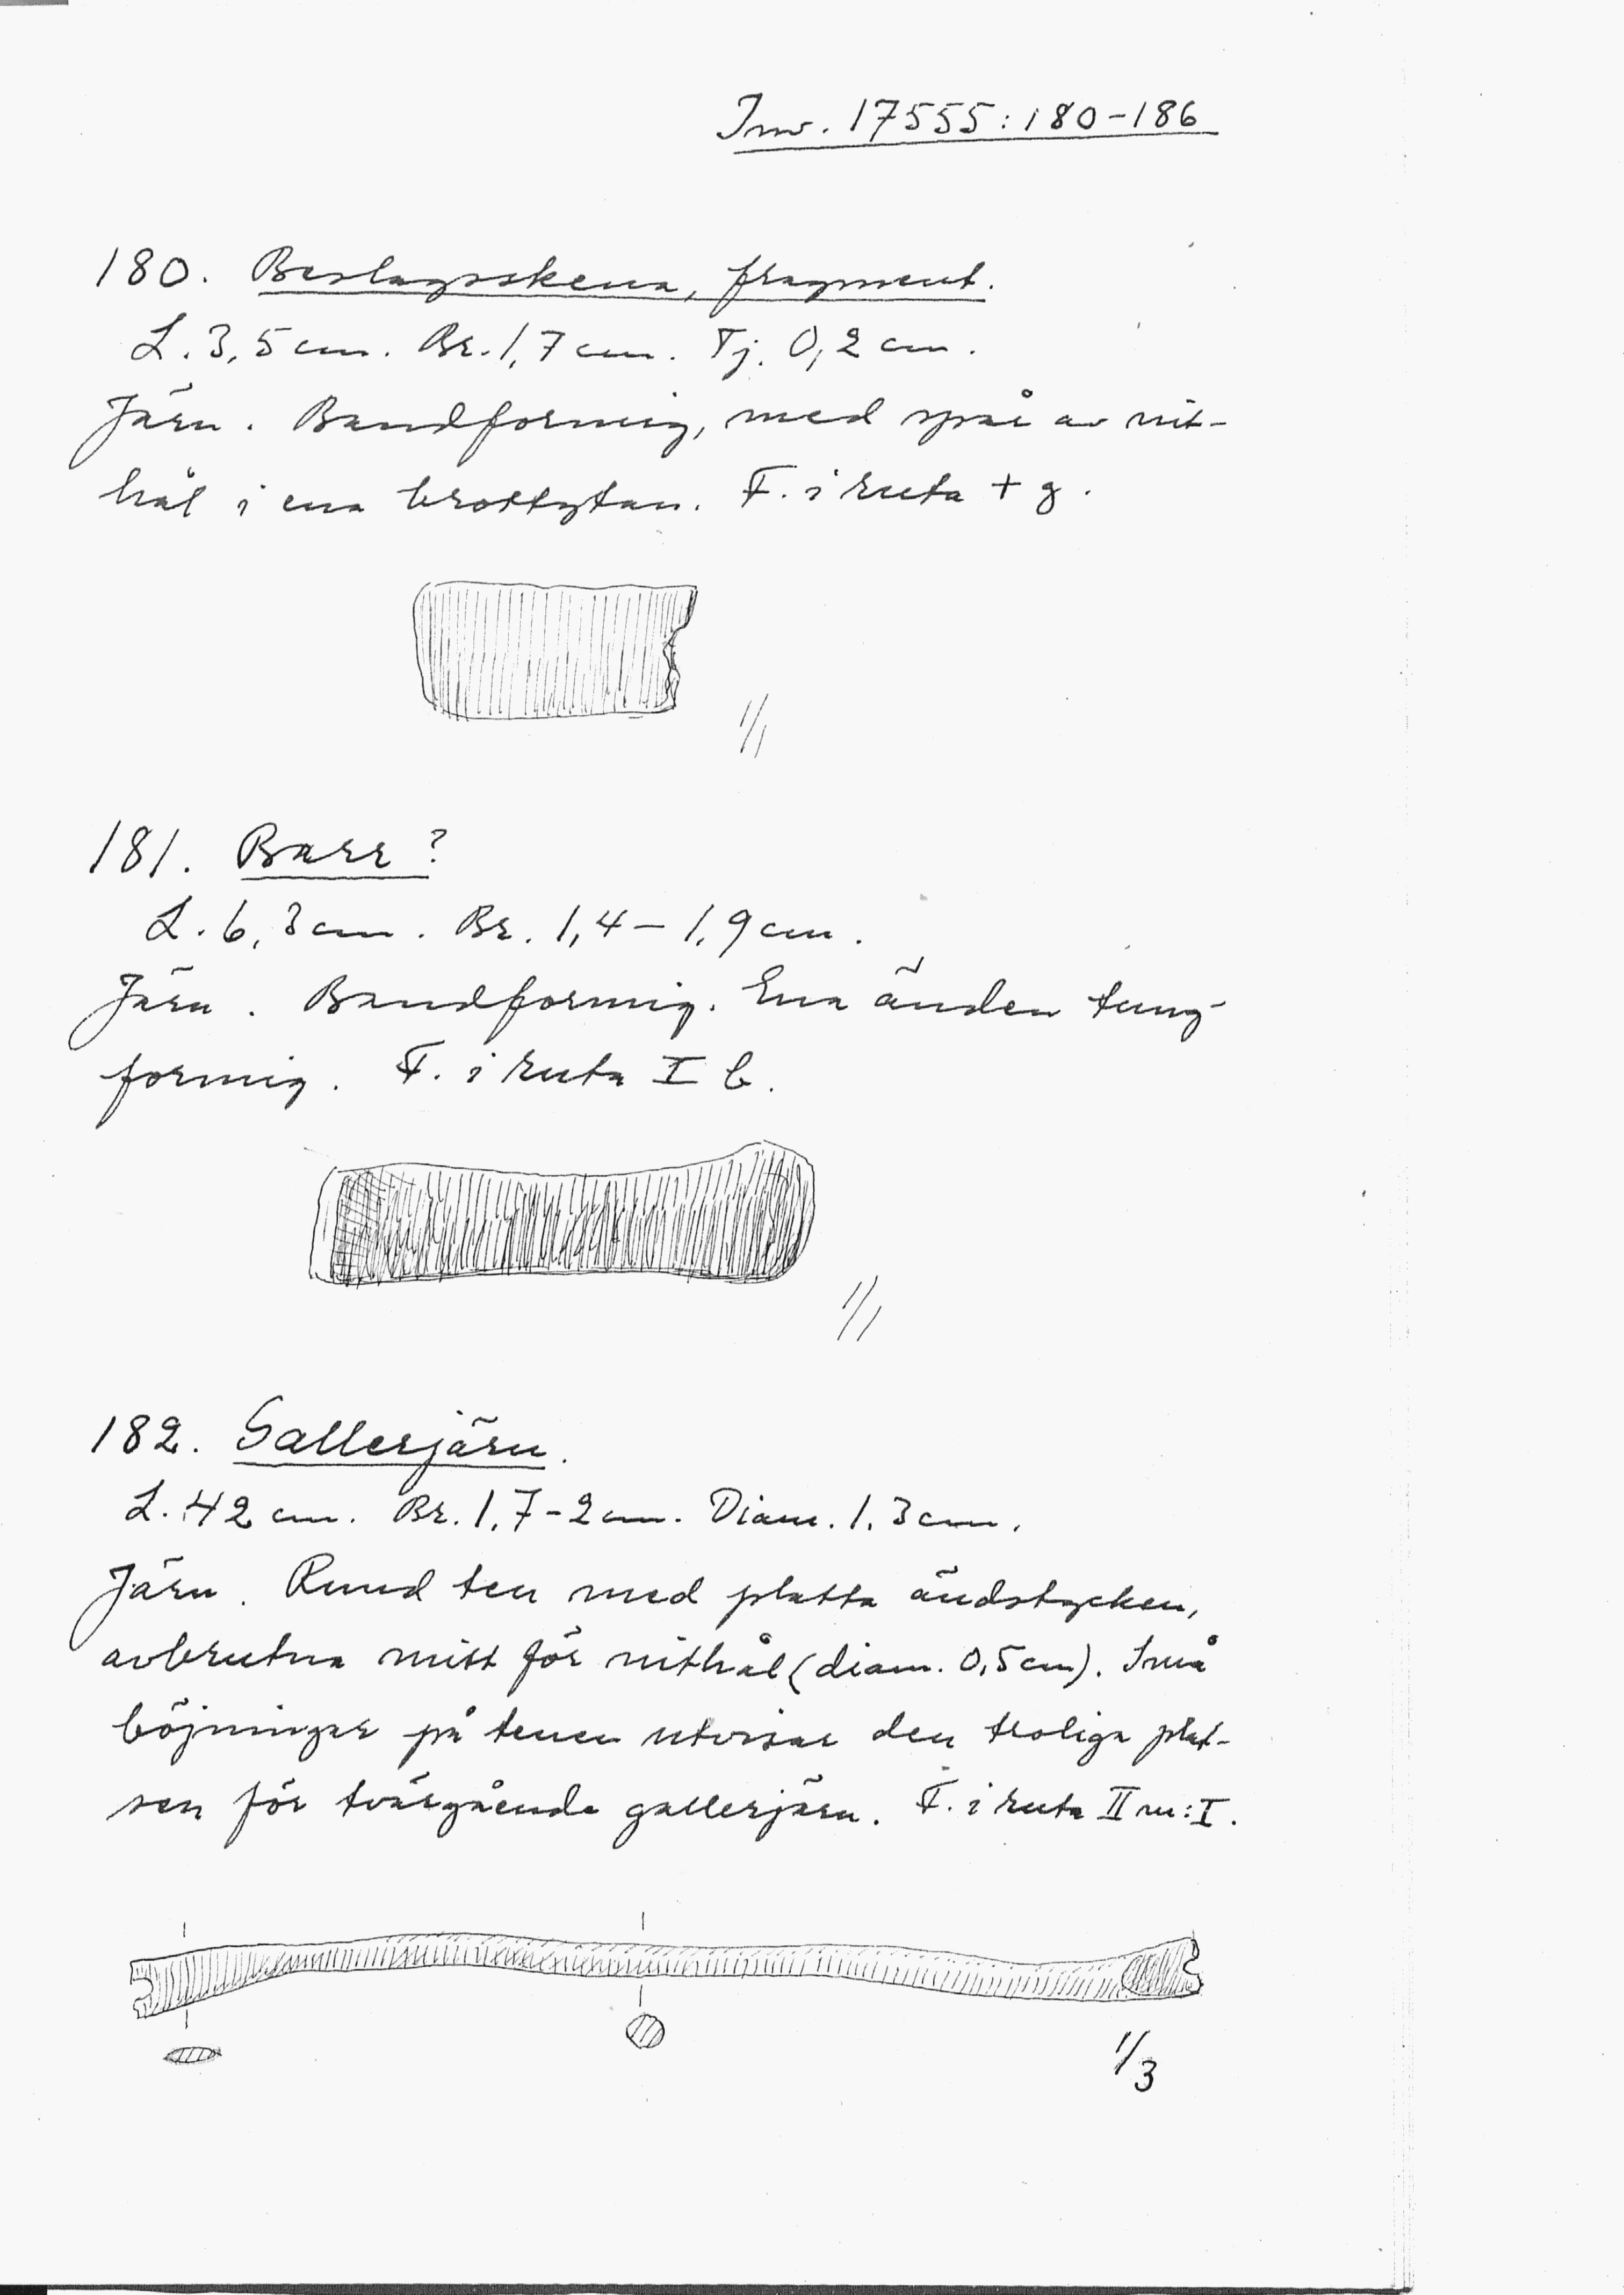 Inv. 17555:180-186
180. Beslagsskena, fragment.
L. 3,5 cm. Br. 1,7 cm. Tj. 0,2 cm.
Järn. Bandformig, med spår av nit-
hål i ena brottytan. F. i ruta + g.
1/1
181. Barr?
L. 6,3 cm. Br. 1,4 – 1,9 cm.
Järn. Bandformig. Ena änden tung-
formig. F. i ruta I b.
1/1
182. Gallerjärn.
L. 42 cm. Br. 1,7-2 cm. Diam. 1,3 cm.
Järn. Rund ten med platta ändstycken,
avbrutna mitt för nithål (diam. 0,5 cm). Små
böjningar på tenen utvisar den troliga plat-
sen för tvärgående gallerjärn. F. i ruta II m:I.
1/3